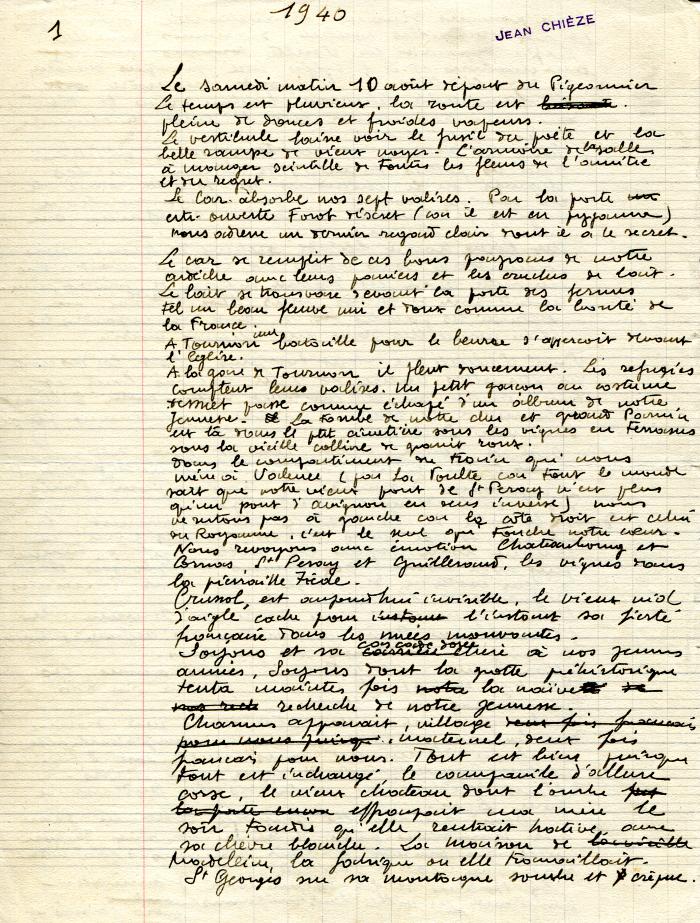 1940
1
JEAN CHIÈZE
Le samedi matin 10 août départ du Pigeonnier
Le temps est pluvieux, la route est
pleine de douces et froides vapeurs.
Le vestibule laisse voir le fusil du poète et la
belle rampe de vieux noyer. L'armoire de la salle
à manger scintille de toutes les fleurs de l'amitié
et du regret.
Le car absorbe nos sept valises. Par la porte
entr-ouverte Forot discret (car il est en pygama)
nous adresse un dernier regard clair dont il a le secret.
Le car se remplit de ces bons paysans de notre
ardèche avec leurs paniers et les cruches de lait.
Le lait se transvase devant la porte des fermes
tel un beau fleuve uni et doux comme la bonté de
la France.
A Tournon une bataille pour le beurre s'aperçoit devant
l'Eglise.
A la gare de Tournon il pleut doucement. Les refugiés
comptent leurs valises. Un petit garçon au costume
passe comme échapé d'un album de notre
Jeunesse. La tombe de notre cher et grand Parnin
est là dans le ptit cimetière sous les vignes en terrasses
sous la vieille colline de granit roux.
Dans le compartiment du train qui nous
mène à Valence (par La Voulte car tout le monde
sait que notre vieux pont de St Peray n'est plus
qu'un pont d'avignon en sens inverse) nous
ne sentons pas à gauche car le côté droit est celui
du Royaume, c'est le seul qui touche notre cœur.
Nous revoyons avec émotion Chateaubourg et
Cornas, St Peray et Guilherand, les vignes dans
la pierraille tiède.
Crussol, est aujourdhui invisible, le vieux nid
d'aigle cache pour l'instant sa fierté
française dans les nuées mouvantes.
Soyons et sa chère à nos jeunes
années, Soyons dont la grotte préhistorique
tenta maintes fois notre la naïve
recherche de notre jeunesse.
Charmes apparait, village deux fois français
pour nous puisque maternel, deux fois
francais pour nous. Tout est bien, puisque
tout est inchangé, le campanile d'allure
corse, le vieux chateau dont l'ombre
la porte encore effrayait ma mère le
soir tandis qu'elle rentrait hative, avec
sa chèvre blanche. La maison de la vieille
Madeleine, la fabrique ou elle travaillait.
St Georges sur sa montagne sombre et crépue.